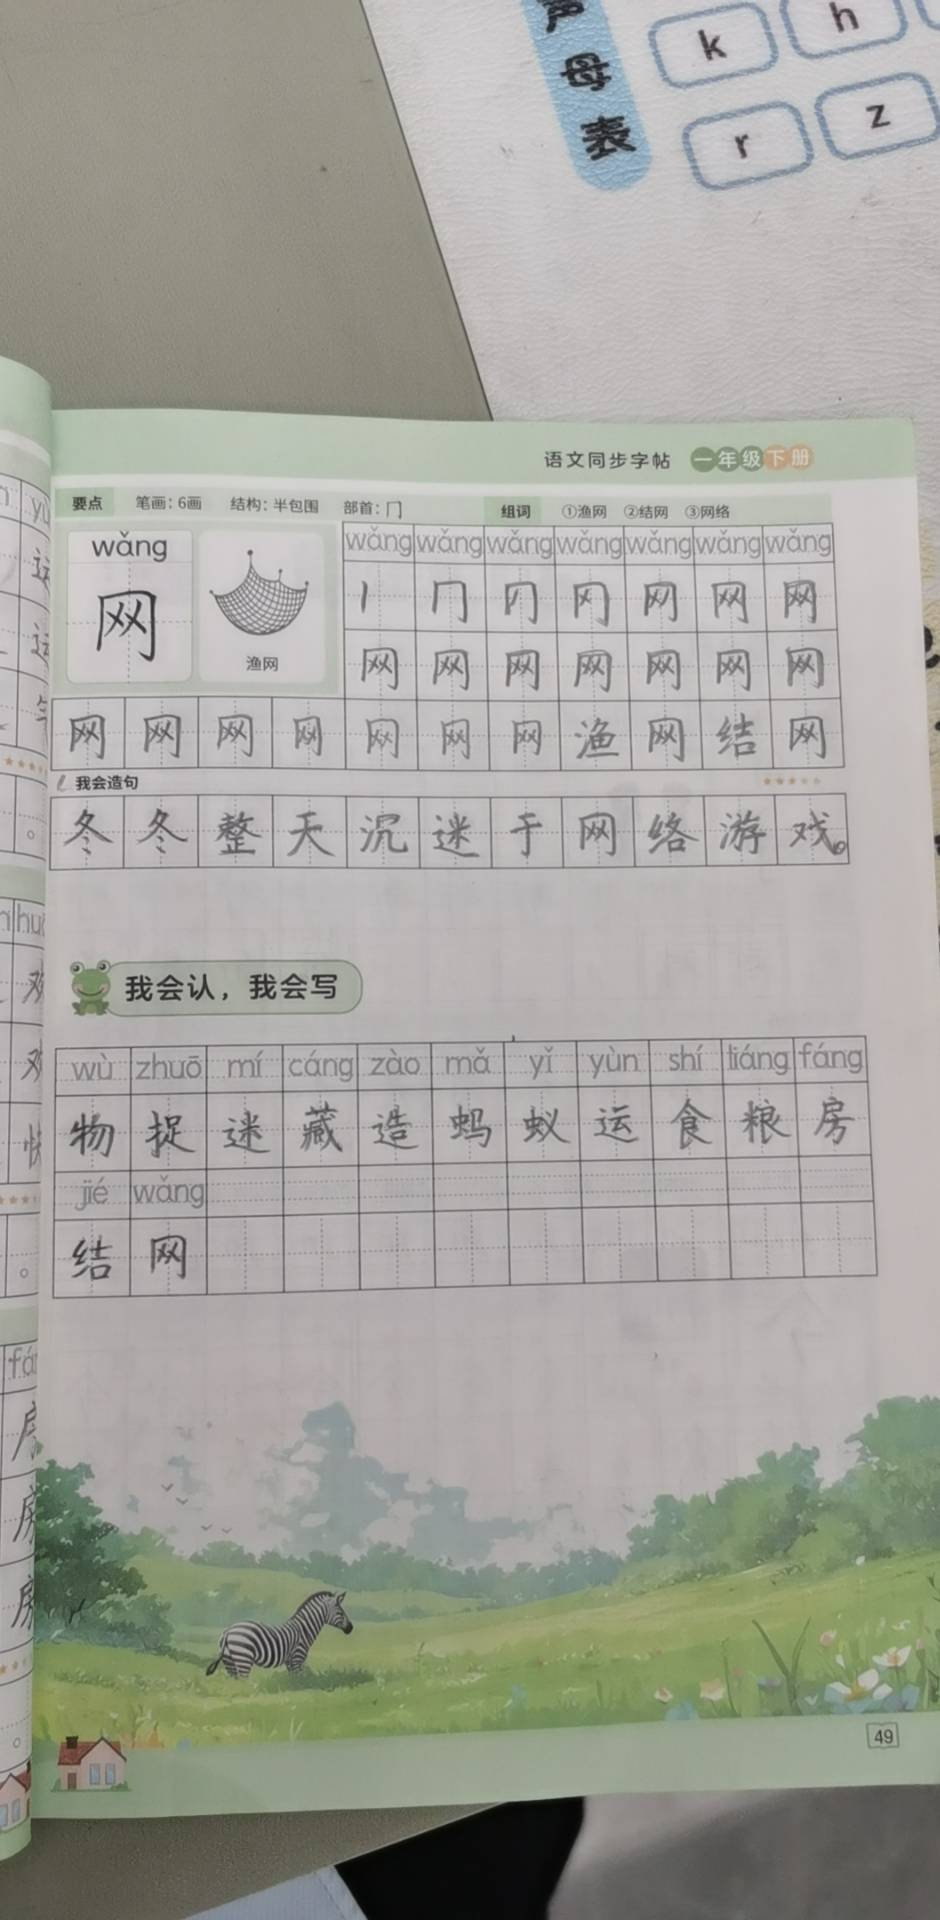 声母表
k h
r z
语文同步字帖 一年级下册
要点 笔画：6画 结构：半包围 部首：冂 组词 ①渔网 ②结网 ③网络
wǎng
网
渔网
wǎng wǎng wǎng wǎng wǎng wǎng wǎng
丨 冂 网 网 网
网 网 网 网 网 网 网
网 网 网 网 网 网 网 渔 网 结 网
我会造句
冬 冬 整 天 沉 迷 于 网 络 游 戏。
我会认，我会写
wù zhuō mí cáng zào mǎ yǐ yùn shí liáng fáng
物 捉 迷 藏 造 蚂 蚁 运 食 粮 房
jié wǎng
结 网
49